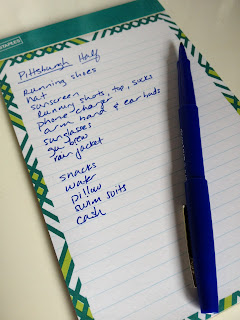 STAPLES
Pittsburgh Half
Running shoes
hat
sunscreen
Running shorts, top, socks
phone charger
arm band & earbuds
sunglasses
ga brew
rain jacket
snacks
water
pillow
swim suits
cash